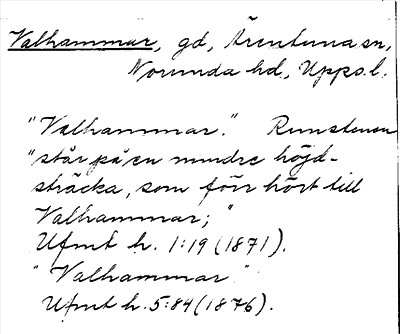 Valhammar, gd, Ärentuna sn,
Norunda hd, Upps.l.
"Valhammar." Runstenen
"står på en mindre höjd-
sträcka, som förr hört till
Valhammar;"
Ufmt h. 1:19 (1871).
"Valhammar"
Ufmt h. 5:84 (1876).